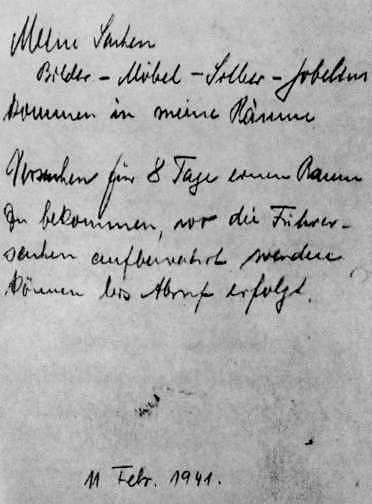 Meine Sachen
Bilder - Möbel - Silber - Gobelins
kommen in meine Räume
Versuchen für 8 Tage einen Raum
zu bekommen, wo die Führer-
sachen aufbewahrt werden
können bis Abruf erfolgt.
11 Febr. 1941.